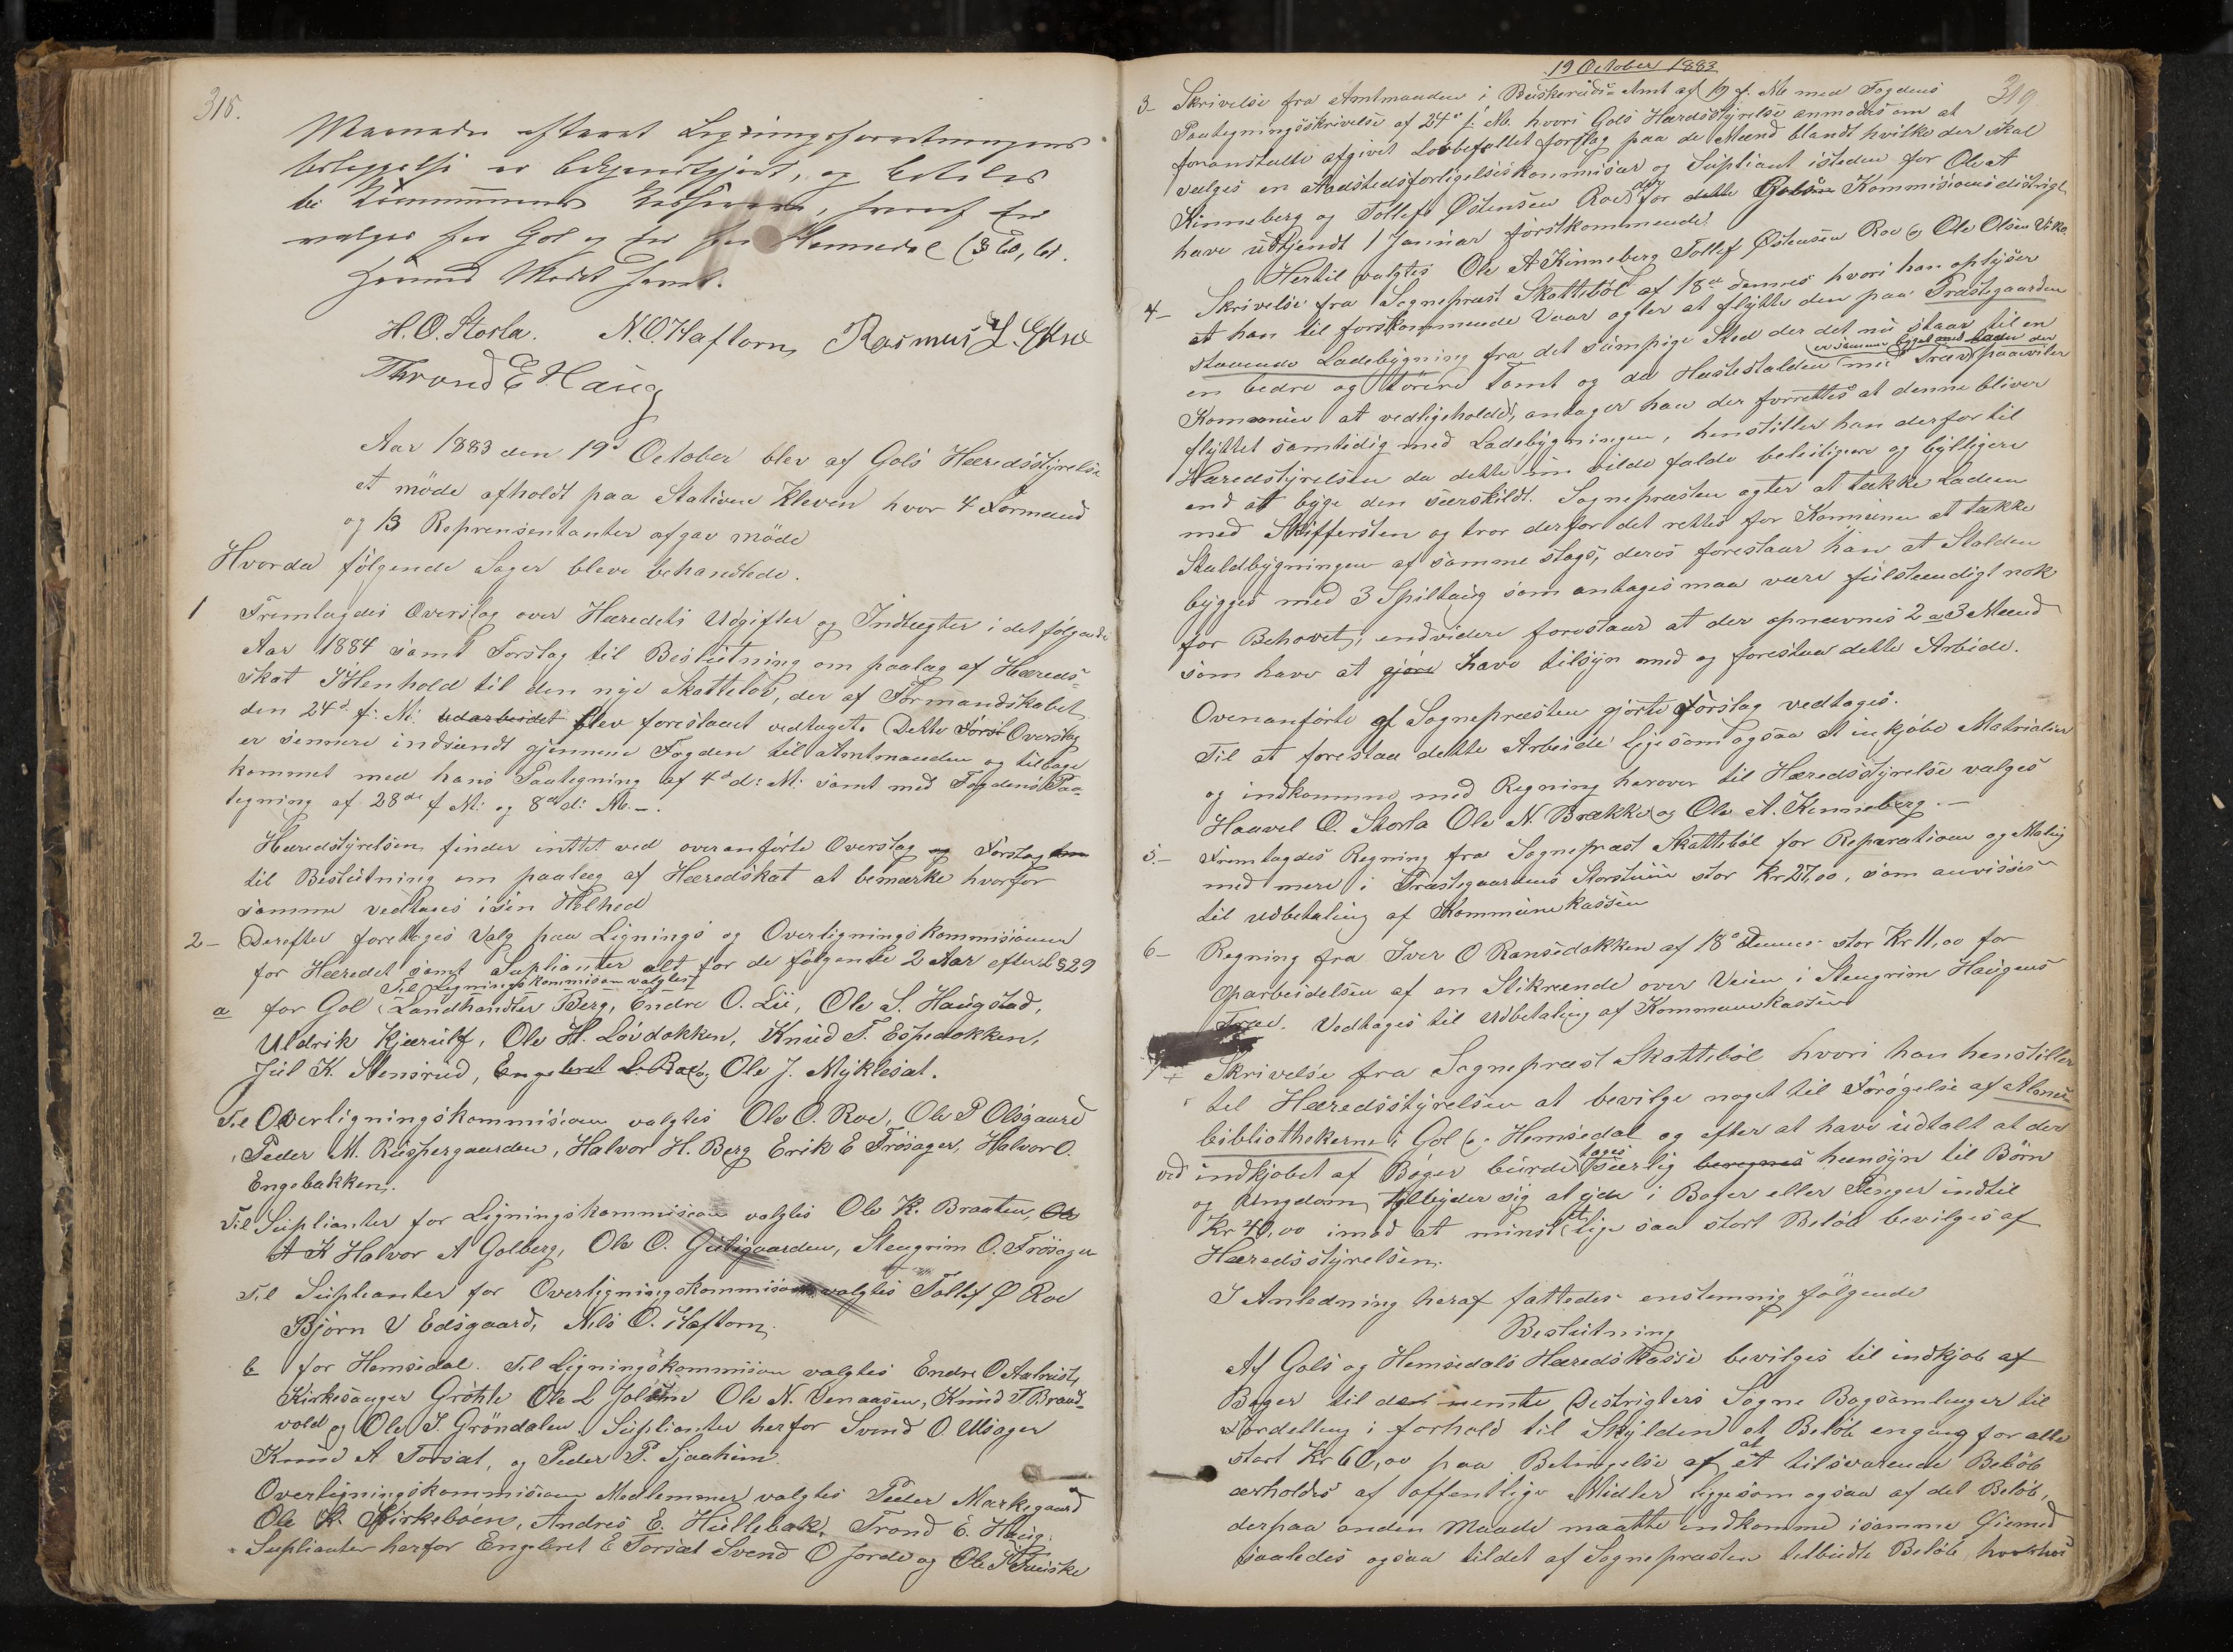 318.
Maaneder efterat Ligningsforretningens
til Kommunens Kasserere, hvoraf en
vælges for Gol og en for Hemsedal (§ 60, 61.
Hermed Mødet hævet.
H. O. Storla. N. O. Haftorn Rasmus L.
Thrond E Haug
Aar 1883 den 19d October blev af Gols Heredsstyrelse
et møde afholdt paa Stationen Kleven hvor 4 Formænd
og 13 Reprensentanter afgav møde
Hvorda følgende Sager bleve behandlede.
1 Fremlagdes Overslag over Heredets Udgifter og Indtægter i det følgende
Aar 1884 samt Forslag til Beslutning om paalæg af Hereds-
skat I Henhold til den nye Skattelov, der af Formandskabet
den 24d f. M: udarbeidet blev forestaaet vedtaget. Dette Forsl Overslag
er sennere indsendt gjennem Fogden til Amtmanden og tilbage
kommet med hans Paategning af 4d d: M: samt med Fogdens Paa-
tegning af 28de f M: og 8de d: M. -.
Heredstyrelsen finder inttet ved overanførte Overslag og Forslag
til Beslutning om paalæg af Heredskat at bemærke hvorfor
samme vedtages i sin Helhed
2- Derefter foretoges Valg paa Lignings og Overligningskommisionen
for Heredet samt Suplianter alt for de følgende 2 Aar efter L § 29
Til Ligningskommision valgtes
a for Gol Landhandler Berg, Endre O. Lii, Ole S. Haugstad,
Uldrik Kjærulf, Ole H. Løvdokken, Knud T. Espedokken,
Jul K. Stensrud, Engebret L. Roe, Ole J. Myklesat.
Til Overligningskommisionen valgtes Ole O. Roe, Ole P Olsgaard
Peder M. Ruspergaarden, Halvor H. Berg Erik E Frøsager, Halvor O.
Engebakken.
Til Suplianter for Ligningskommision valgtes Ole K. Braaten, Ole
A K Halvor A Golberg, Ole O. Gutigaarden, Stengrim O. Frøsager
Til Suplianter for Overligningskommision valgtes Tollef Ø Roe
Bjørn V Edsgaard, Nils O. Haftorn.
b for Hemsedal. Til Ligningskommision valgtes Endre O
Kirkesanger Grøthe Ole L Ole N. Venaasen, Knud T Brand-
vold og Ole S. Grøndalen Suplianter herfor Svend O Ulsager
Knud A Torsat, og Peder P. Sjaahim.
Overligningskommisions Medlemmer valgtes Peder Markegaard
Ole K. Kirkebøen, Andres E. Hullebak, Trond E. Haug.
Suplianter herfor Engebret E Torsat Svend O Jorde og Ole
19 October 1883
319
3- Skrivelse fra Amtmanden i Buskeruds Amt af 19 f. M. med Fogdens
Paategningsskrivelse af 24de f. M. hvori Gols Heredsstyrelse anmodes om at
foranstalte afgivet Lovbefallet forslag paa de Mænd blandt hvilke der skal
vælges en Stadstedsforligelseskommisær og Supliant isteden for Ole A
Kinneberg og Tollef Østensen Roe for dette Gols Kommisionsdistrigt
have udtjendt 1 Januar førstkommende.
Hertil valgtes Ole A Kinneberg Tollef Østensen Roe og Ole Olsen
4- Skrivelse fra Sognepræst Skattebøl af 18de dennes hvori han oplyser
at han til førstkommende Vaar agter at flytte den paa Præstegaarden
staaende Ladebygning fra det sumpige Sted der det nu staar til en
en bedre og tørere Tomt og da Hestestalden er sammenbygget med Laden der
Komunen at vedligeholde, antager han der forrettes at denne bliver
flyttet samtidig med Ladebygningen, henstiller han derfor til
Heredstyrelsen da dette nu vilde falde beleiligere og bylligere
end at bygge den særskildt. Sognepræsten agter at tække Laden
med Skiffersten og tror derfor det rettes for Komunen at tække
Staldbygningen af samme slags, deres forestaar han at Stalden
bygges med 3 Spiltaug som antages maa være fulstændigt nok
for Behovet, endvidere forestaar at der opnævnes 2 a 3 Mænd
som have at gjøre have tilsyn med og forestaa dette Arbide.
Ovenanførte af Sognepræsten gjorte Forslag vedtages.
Til at forestaa dette Arbeide ligesom ogsaa at inkjøbe Matrialier
og indkomme med Regning herover til Heredsstyrelse valges
Haavel O. Storla Ole N. Brække og Ole A. Kinneberg. -
5.- Fremlagdes Regning fra Sognepræst Skattebøl for Reparation og Maling
med mere i Præstegaardens Storstuen stor Kr 27,00, som anvises
til udbetaling af Kommunekassen
6- Regning fra Iver O Ransedokken af 18de Dennes stor Kr 11,00 for
oparbeidelsen af en Stikrænde over Veien i Stengrim Haugens
Træe. Vedtages til Udbetaling af Kommunekassen
7 Skrivelse fra Sognepræst Skattebøl hvori han henstiller
tel Heredsstyrelsen at bevilge noget til Forøgelse af Almu
bibliothekerne i Gol og Hemsedal og efter at have udtalt at der
ved indkjøbet af Bøger burde tages særlig beregnes hensyn til Børn
og Ungdom tilbyder sig at yde i Bøger eller Penger indtil
Kr 40,00 imod at minst et lige saa stort Beløb bevilges af
Heredsstyrelsen.
I Anledning heraf fattedes enstemmig følgende
Beslutning
Af Gols og Hemsedals Heredskasse bevilges til indkjøb af
Bøger til de nemte Distrigters Sogne Bogsamlinger til
Fordelling i forhold til Skylden et Beløb engang for alle
stort Kr 60,00 paa Betingelse af at et tilsvarende Beløb
erholdes af offentlige Midler liggesom ogsaa af det Beløb,
derpaa anden Maade maatte indkomme i samme Øiemed
saaledes ogsaa tildet af Sognepræsten tilbudte Beløb